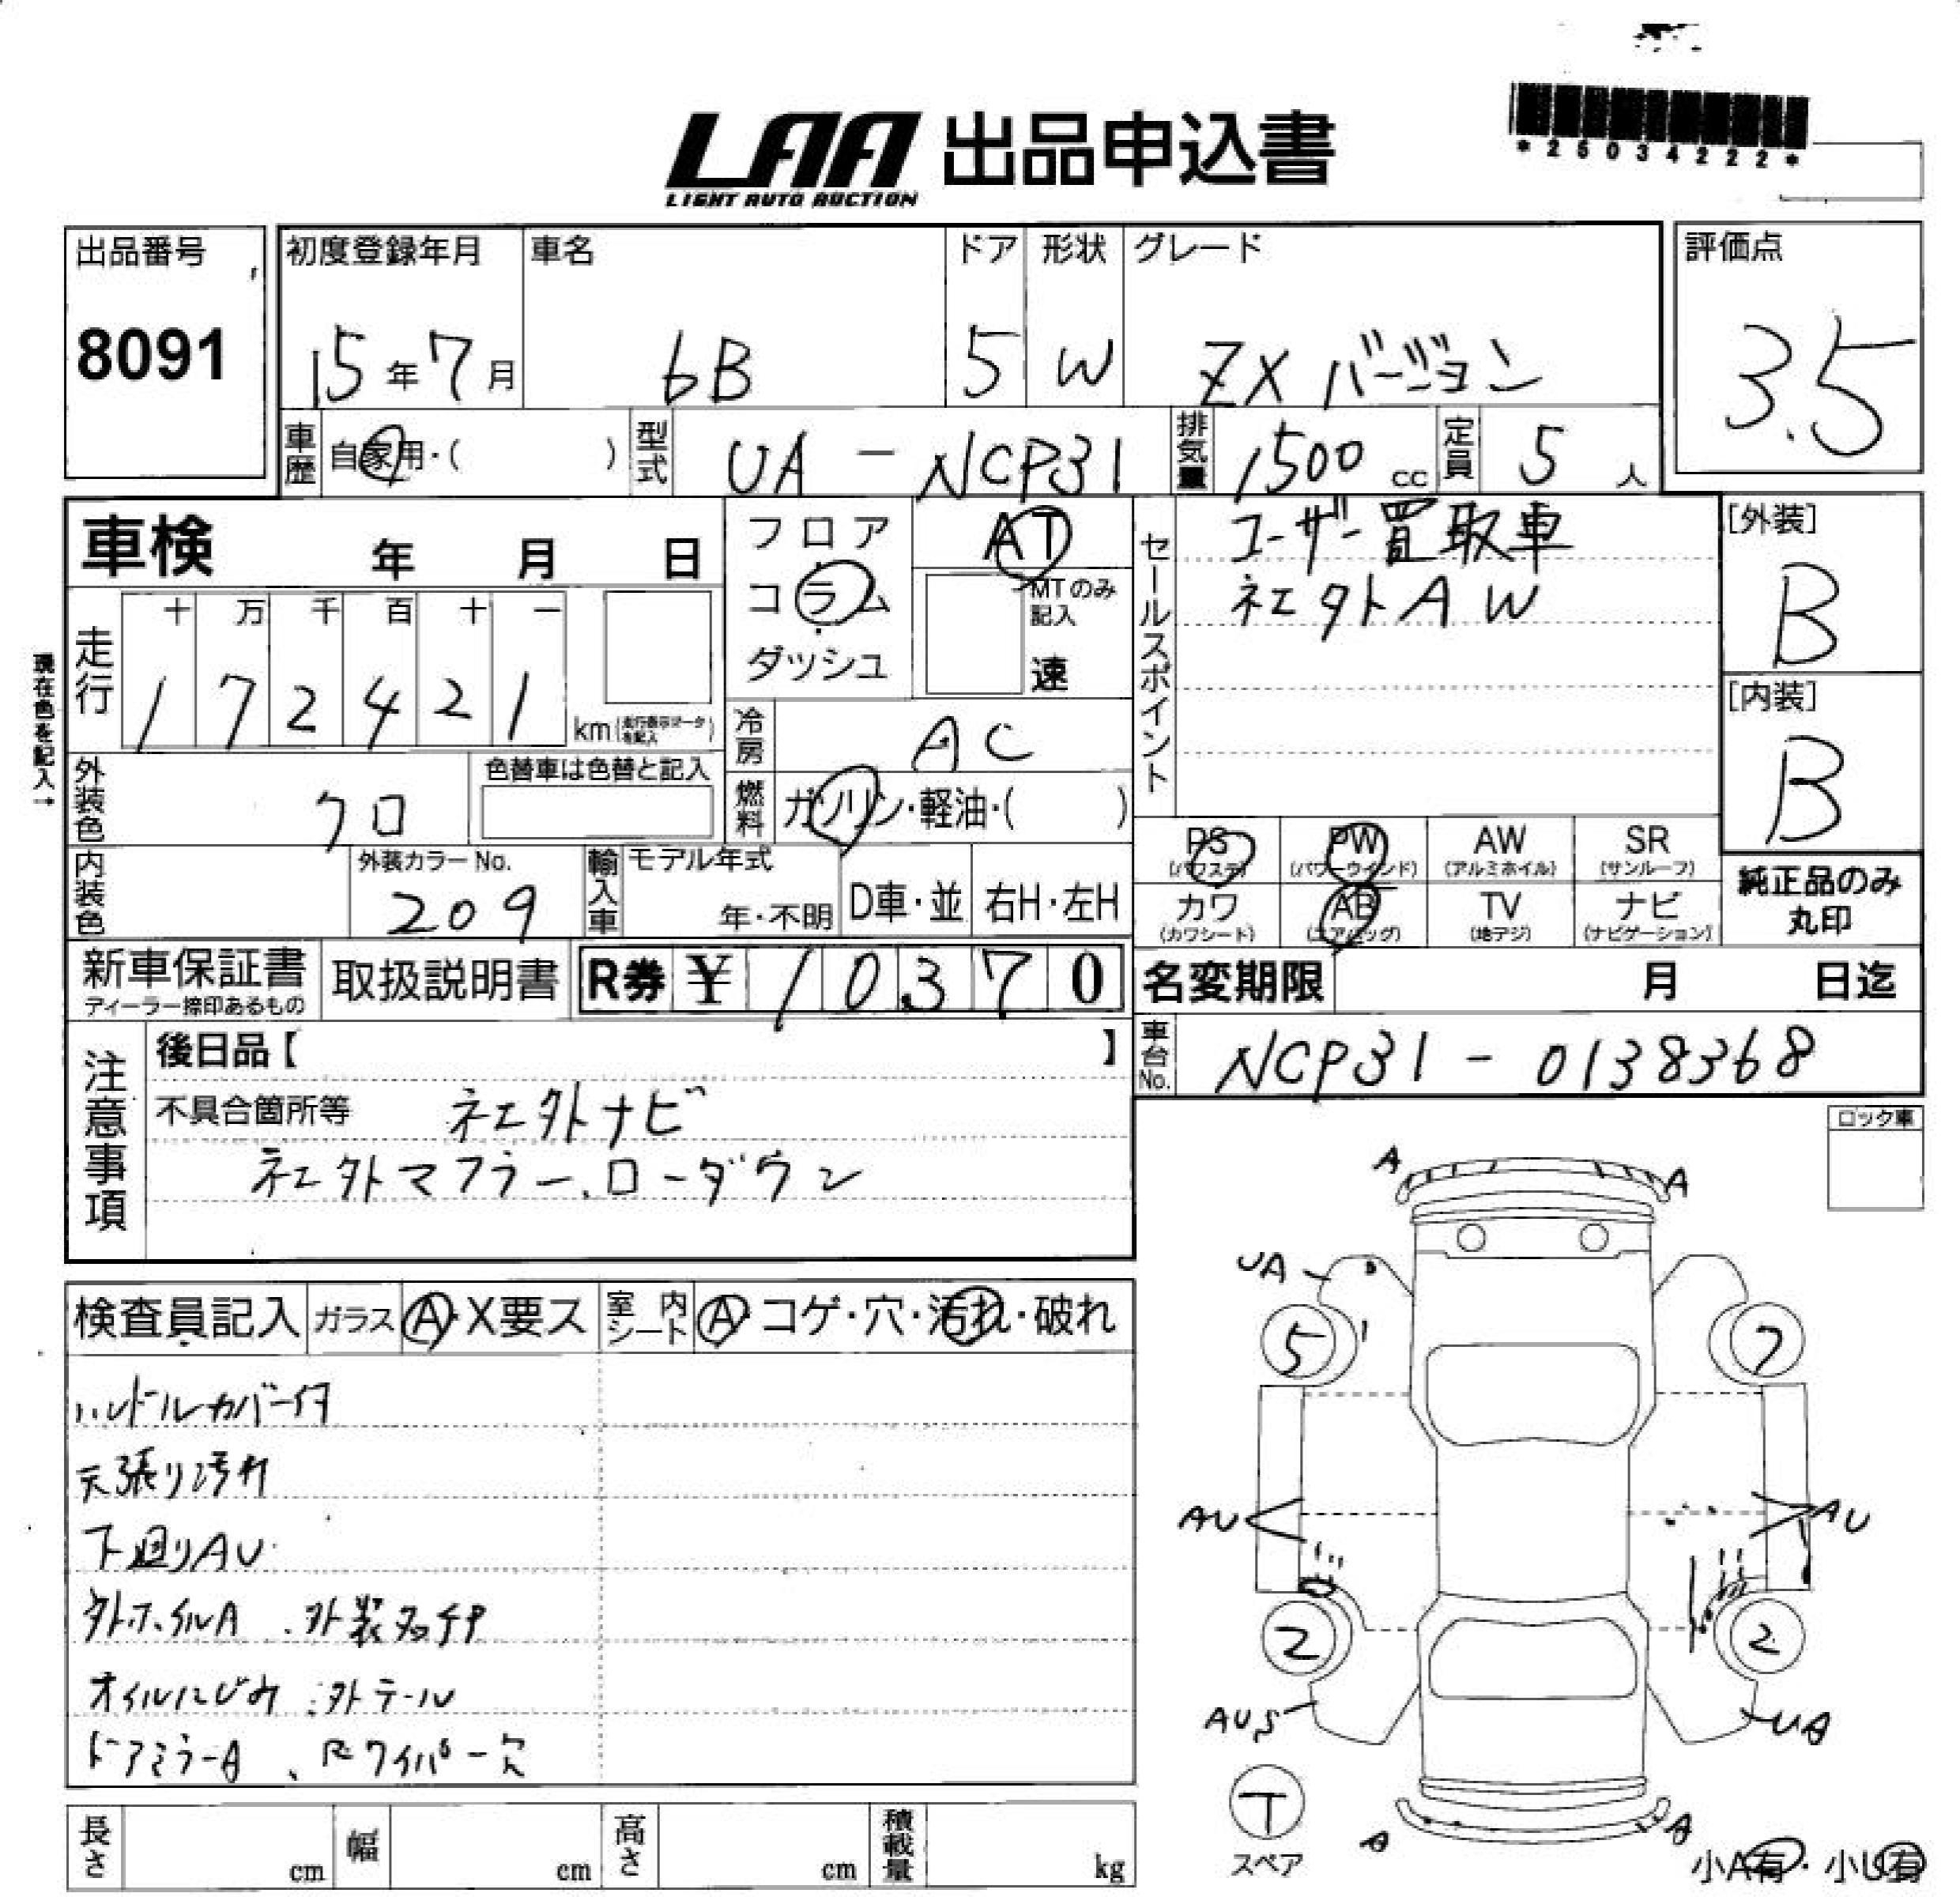 *25034222*
LAA 出品申込書
LIGHT AUTO AUCTION
出品番号 8091
初度登録年月 15年7月
車名 bB
ドア 5
形状 W
グレード ZX バージョン
評価点 3.5
車歴 自家用・( )
型式 UA-NCP31
排気量 1500 cc
定員 5 人
車検 年 月 日
フロア
コラム
ダッシュ
AT
MTのみ記入
速
セールスポイント
ユーザー買取車
社外AW
[外装] B
[内装] B
現在色を記入→
走行 十 万 千 百 十 一
1 7 2 4 2 1 km (走行表示マークを記入)
冷房 AC
外装色 クロ
色替車は色替と記入
燃料 ガソリン・軽油・( )
内装色
外装カラーNo. 209
輸入車 モデル年式
年・不明 D車・並 右H・左H
PS (パワステ) PW (パワーウインド) AW (アルミホイル) SR (サンルーフ)
カワ (カワシート) AB (エアバッグ) TV (地デジ) ナビ (ナビゲーション)
純正品のみ
丸印
新車保証書
ディーラー捺印あるもの
取扱説明書
R券 ¥ 10370
名変期限 月 日迄
車台No. NCP31-0138368
注意事項
後日品【 】
不具合箇所等 社外ナビ
社外マフラー、ローダウン
ロック車
検査員記入 ガラス A・X要ス 室内シート A・コゲ・穴・汚れ・破れ
ハンドルカバー付
天張り汚れ
下廻りAU
外ホイルA、外装タッチP
オイルにじみ、外テール
ドアミラーA、Rワイパー欠
A A
UA
5 7
AU AU
2 2
AUS UA
T
スペア
A A
小A有・小U有
長さ cm 幅 cm 高さ cm 積載量 kg